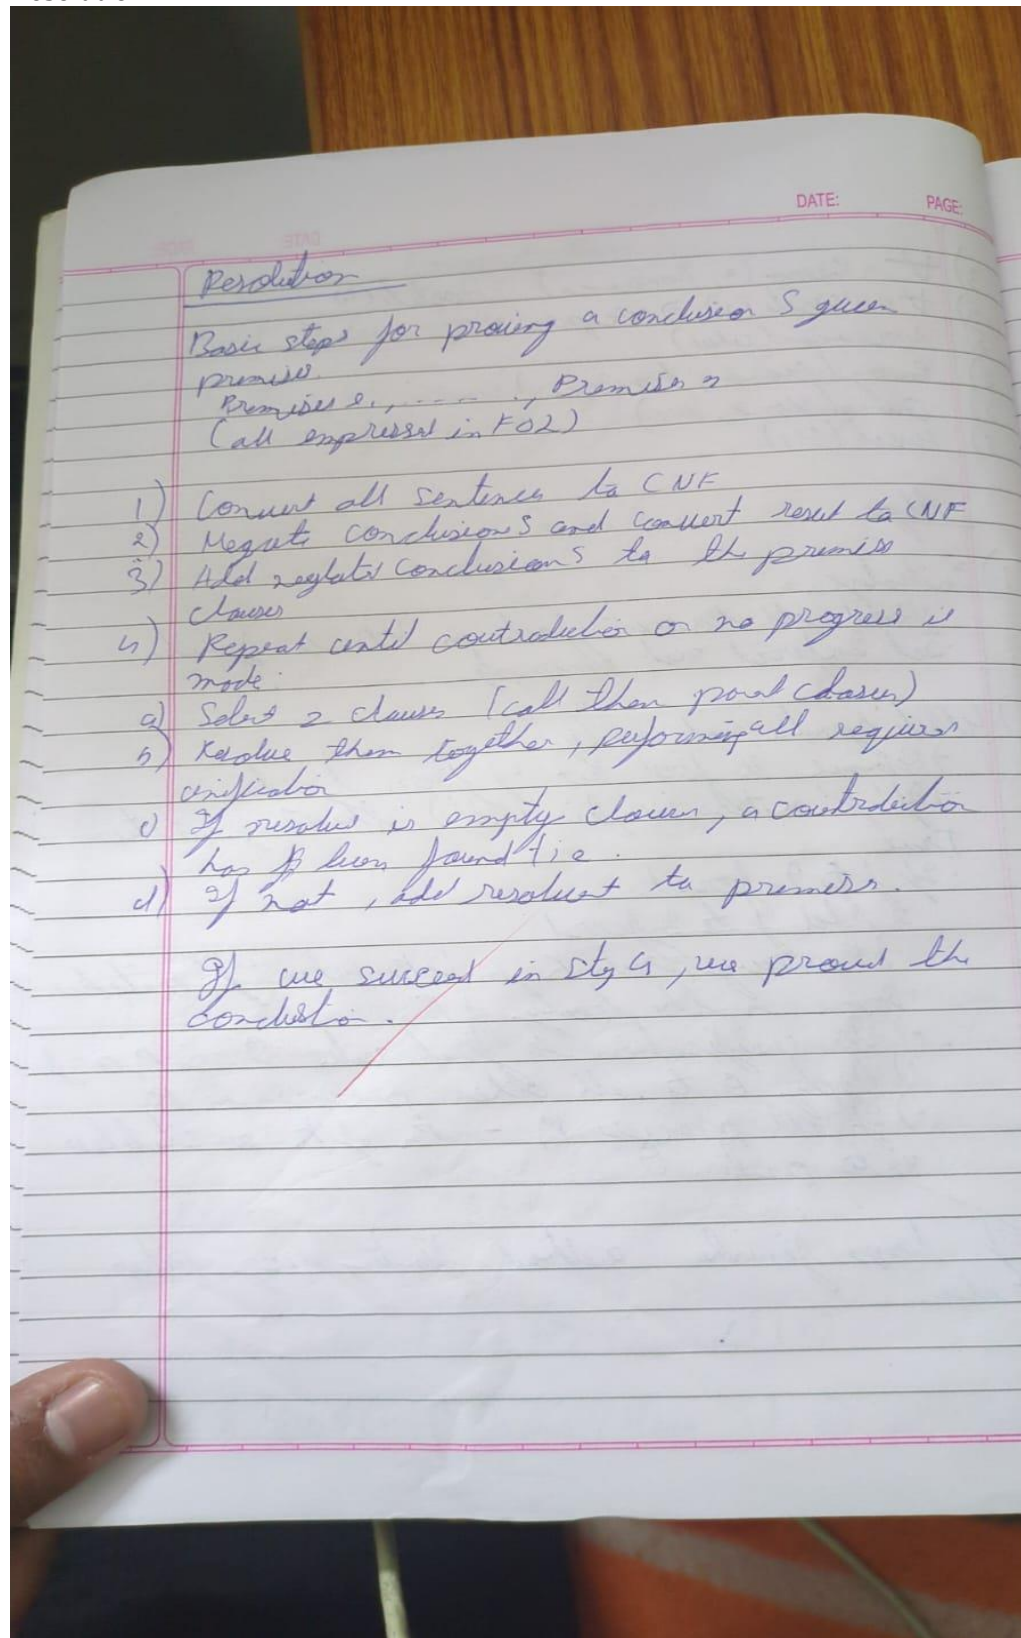 DATE: PAGE:
Resolution
Basic steps for proving a conclusion S given
premises
Premises 1, ......., Premises n
(all expressed in FOL)
1) Convert all sentences to CNF
2) Negate conclusion S and convert result to CNF
3) Add negated conclusion S to the premise
clauses
4) Repeat until contradiction or no progress is
made:
a) Select 2 clauses (call them parent clauses)
b) Resolve them together, performing all required
unification
c) If resolvent is empty clause, a contradiction
has been found
d) If not, add resolvent to premises.
If we succeed in step 4, we proved the
conclusion.